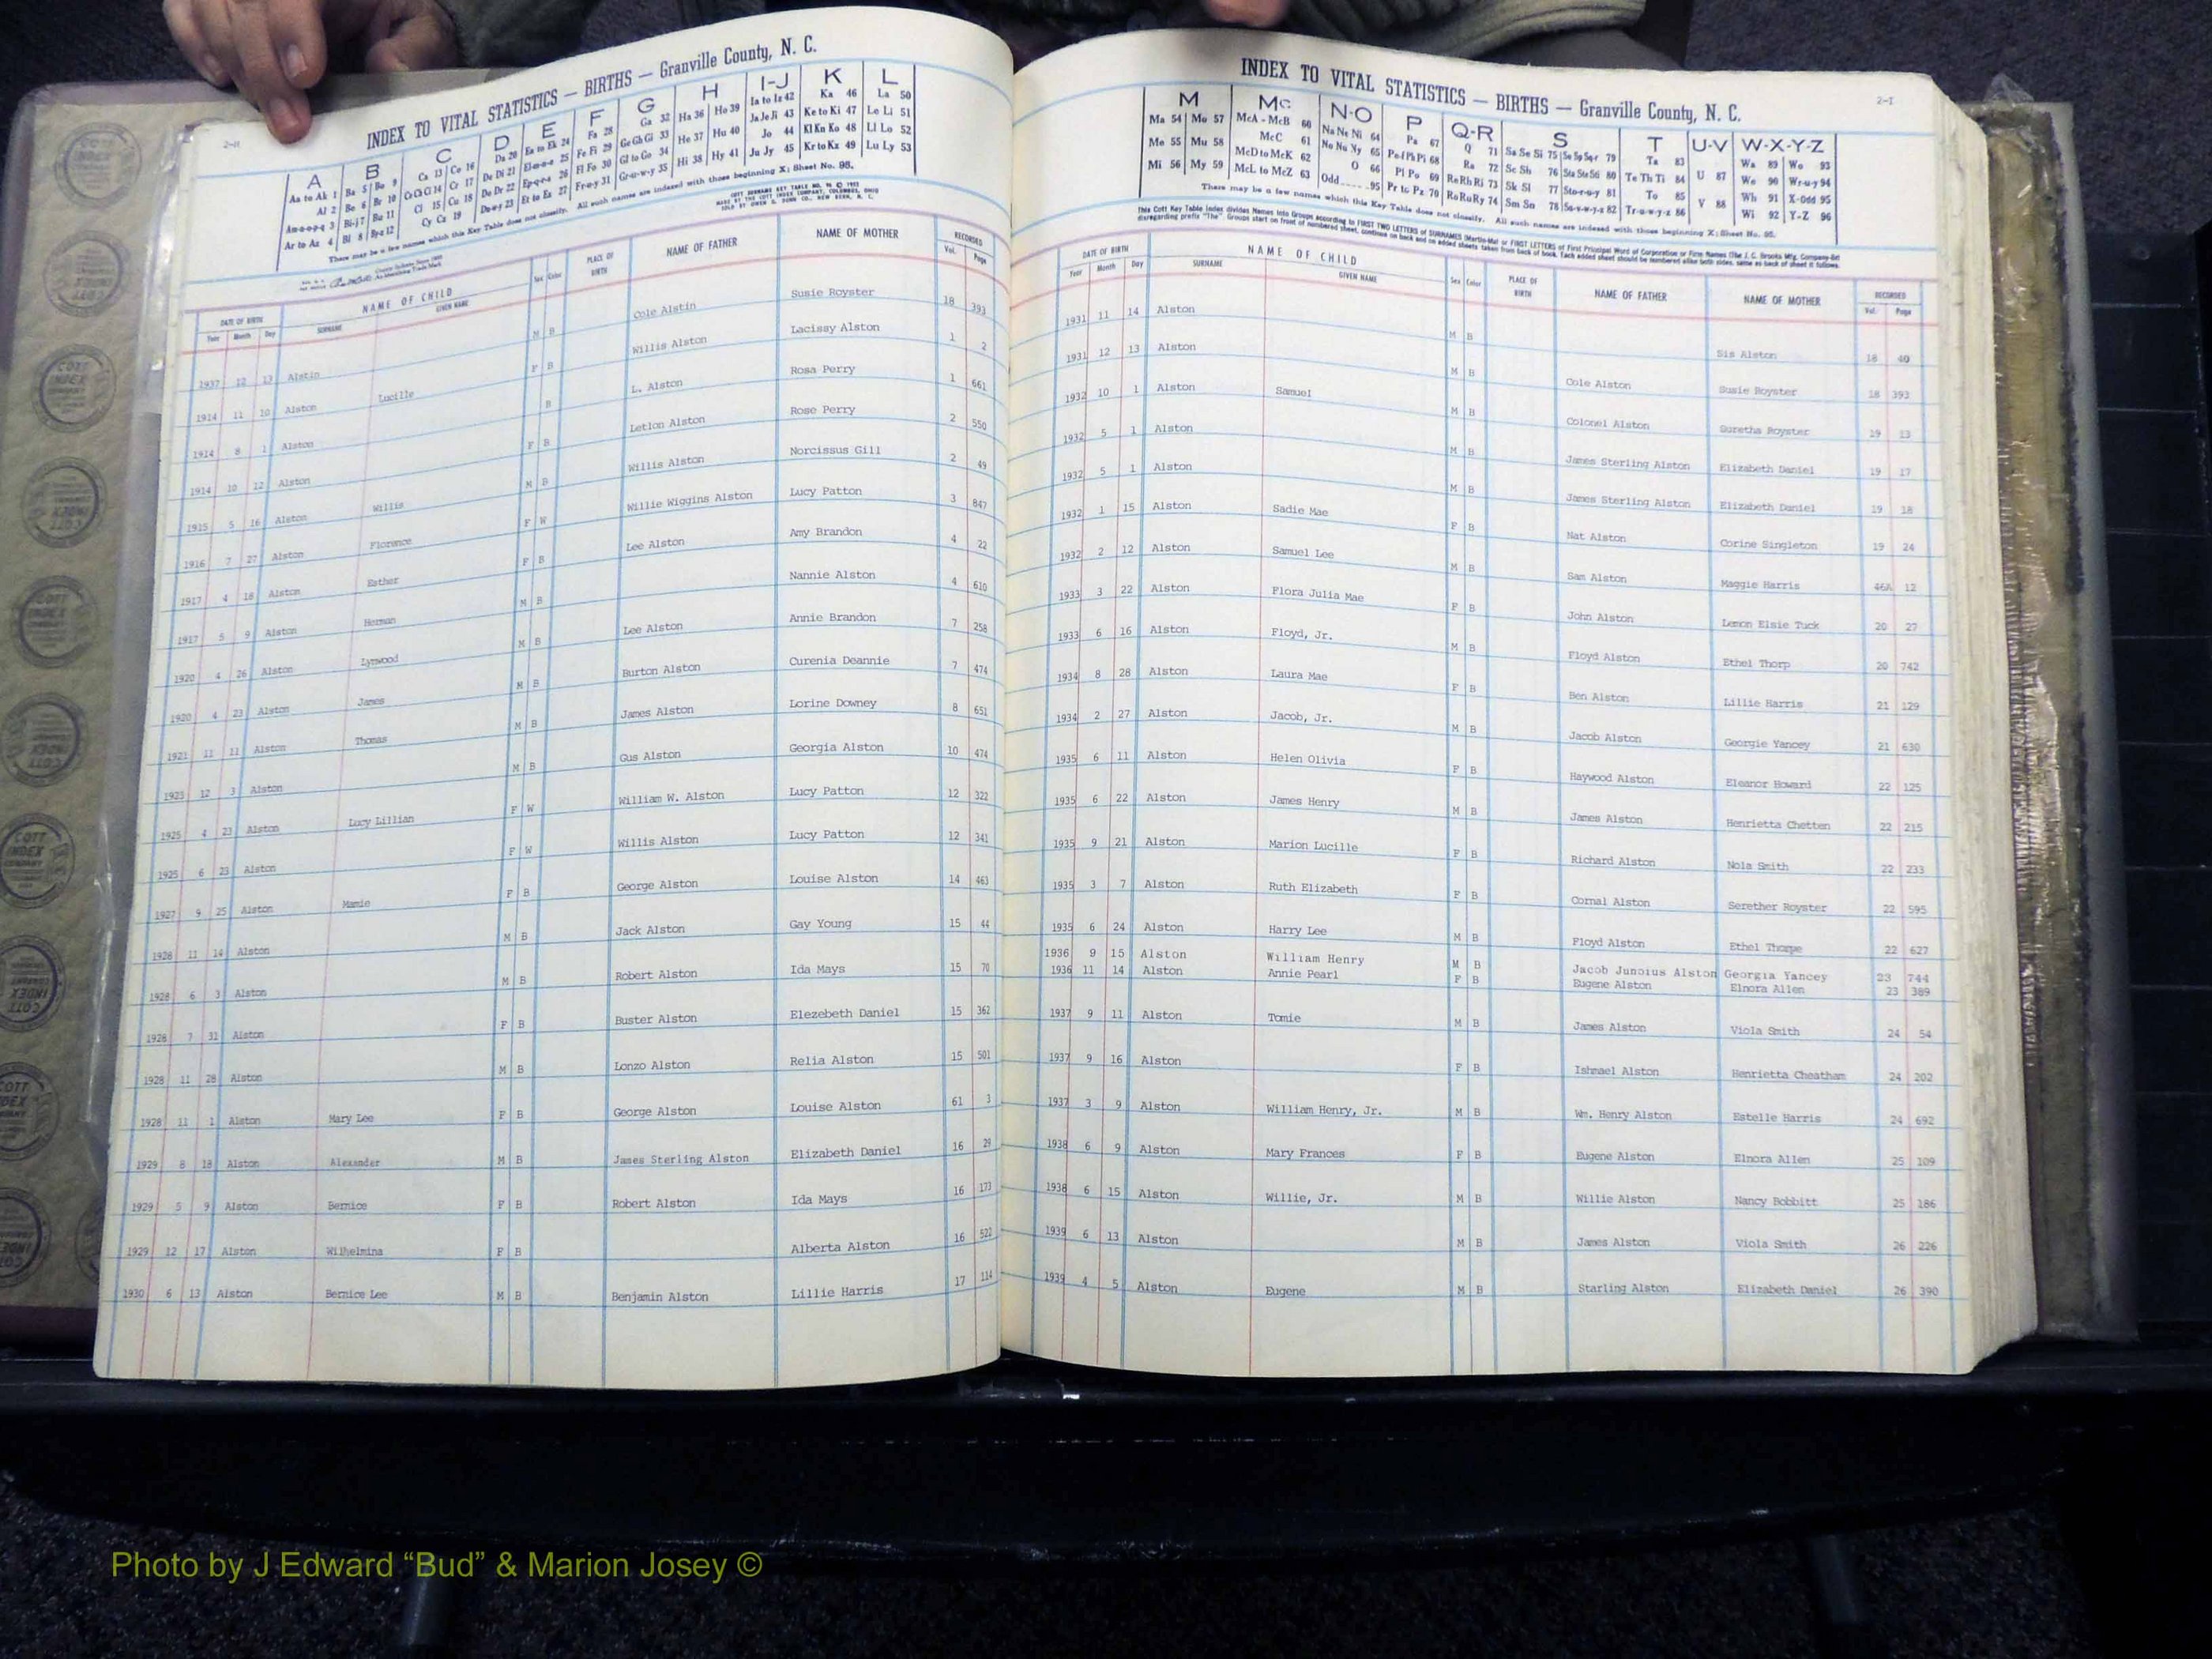 2-H
INDEX TO VITAL STATISTICS — BIRTHS — Granville County, N. C.
A B C D E F G H I-J K L
Aa to Ak 1 Ba 5 Bo 9 Ca 13 Co 16 Da 20 Ea to Ek 24 Fa 28 Ga 32 Ha 36 Ho 39 Ia to Iz 42 Ka 46 La 50
Al 2 Be 6 Br 10 Ce Ch Ci 14 Cr 17 De Di 21 El-m-n-o 25 Fe Fi 29 Ge Gh Gi 33 He 37 Hu 40 Ja Je Ji 43 Ke to Ki 47 Le Li 51
Am-n-o-p-q 3 Bi-j 7 Bu 11 Cl 15 Cu 18 Do Dr 22 Ep-q-r-s 26 Fl Fo 30 Gl to Go 34 Hi 38 Hy 41 Jo 44 Kl Kn Ko 48 Ll Lo 52
Ar to Az 4 Bl 8 By-z 12 Cy Cz 19 Du-w-y 23 Et to Ez 27 Fr-u-y 31 Gr-u-w-y 35 Ju Jy 45 Kr to Kz 49 Lu Ly 53
There may be a few names which this Key Table does not classify. All such names are indexed with those beginning X; Sheet No. 95.
COTT SURNAME KEY TABLE NO. 96 © 1933
MADE BY THE COTT INDEX COMPANY, COLUMBUS, OHIO
SOLD BY OWEN G. DUNN CO., NEW BERN, N. C.
DATE OF BIRTH NAME OF CHILD Sex Color PLACE OF BIRTH NAME OF FATHER NAME OF MOTHER RECORDED
Year Month Day SURNAME GIVEN NAME Vol. Page
1937 12 13 Alstin M B Cole Alstin Susie Royster 18 393
1914 11 10 Alston Lucille F B Willis Alston Lacissy Alston 1 2
1914 8 1 Alston B L. Alston Rosa Perry 1 661
1914 10 12 Alston F B Letlon Alston Rose Perry 2 550
1915 5 16 Alston Willis M B Willis Alston Norcissus Gill 2 49
1916 7 27 Alston Florence F W Willie Wiggins Alston Lucy Patton 3 847
1917 4 18 Alston Esther F B Lee Alston Amy Brandon 4 22
1917 5 9 Alston Herman M B Nannie Alston 4 610
1920 4 26 Alston Lynwood M B Lee Alston Annie Brandon 7 258
1920 4 23 Alston James M B Burton Alston Curenia Deannie 7 474
1921 11 11 Alston Thomas M B James Alston Lorine Downey 8 651
1923 12 3 Alston M B Gus Alston Georgia Alston 10 474
1925 4 23 Alston Lucy Lillian F W William W. Alston Lucy Patton 12 322
1925 6 23 Alston F W Willis Alston Lucy Patton 12 341
1927 9 25 Alston Mamie F B George Alston Louise Alston 14 463
1928 11 14 Alston M B Jack Alston Gay Young 15 44
1928 6 3 Alston M B Robert Alston Ida Mays 15 70
1928 7 31 Alston F B Buster Alston Elezebeth Daniel 15 362
1928 11 28 Alston M B Lonzo Alston Relia Alston 15 501
1928 11 1 Alston Mary Lee F B George Alston Louise Alston 61 3
1929 8 18 Alston Alexander M B James Sterling Alston Elizabeth Daniel 16 29
1929 5 9 Alston Bernice F B Robert Alston Ida Mays 16 173
1929 12 17 Alston Wilhelmina F B Alberta Alston 16 522
1930 6 13 Alston Bernice Lee M B Benjamin Alston Lillie Harris 17 114
2-I
INDEX TO VITAL STATISTICS — BIRTHS — Granville County, N. C.
M Mc N-O P Q-R S T U-V W-X-Y-Z
Ma 54 Mo 57 McA - McB 60 Na Ne Ni 64 Pa 67 Q 71 Sa Se Si 75 So Sp Sq-r 79 Ta 83 U 87 Wa 89 Wo 93
Me 55 Mu 58 McC 61 No Nu Ny 65 Pe-f Ph Pi 68 Ra 72 Sc Sh 76 Sta Ste Sti 80 Te Th Ti 84 V 88 We 90 Wr-u-y 94
Mi 56 My 59 McD to McK 62 O 66 Pl Po 69 Re Rh Ri 73 Sk Sl 77 Sto-r-u-y 81 To 85 Wh 91 X-Odd 95
McL to McZ 63 Odd 95 Pr to Pz 70 Ro Ru Ry 74 Sm Sn 78 Su-v-w-y-z 82 Tr-u-w-y-z 86 Wi 92 Y-Z 96
There may be a few names which this Key Table does not classify. All such names are indexed with those beginning X; Sheet No. 95.
This Cott Key Table Index divides Names into Groups according to FIRST TWO LETTERS of SURNAMES (Martin-Ma) or FIRST LETTERS of First Principal Word of Corporation or Firm Names (The J. C. Brooks Mfg. Company-Br)
disregarding prefix "The" Groups start on front of numbered sheet, continue on back and on added sheets taken from back of book. Each added sheet should be numbered alike both sides, same as back of sheet it follows.
DATE OF BIRTH NAME OF CHILD Sex Color PLACE OF BIRTH NAME OF FATHER NAME OF MOTHER RECORDED
Year Month Day SURNAME GIVEN NAME Vol. Page
1931 11 14 Alston M B Sis Alston 18 40
1931 12 13 Alston M B Cole Alston Susie Royster 18 393
1932 10 1 Alston Samuel M B Colonel Alston Suretha Royster 19 13
1932 5 1 Alston M B James Sterling Alston Elizabeth Daniel 19 17
1932 5 1 Alston M B James Sterling Alston Elizabeth Daniel 19 18
1932 1 15 Alston Sadie Mae F B Nat Alston Corine Singleton 19 24
1932 2 12 Alston Samuel Lee M B Sam Alston Maggie Harris 46A 12
1933 3 22 Alston Flora Julia Mae F B John Alston Lemon Elsie Tuck 20 27
1933 6 16 Alston Floyd, Jr. M B Floyd Alston Ethel Thorp 20 742
1934 8 28 Alston Laura Mae F B Ben Alston Lillie Harris 21 129
1934 2 27 Alston Jacob, Jr. M B Jacob Alston Georgie Yancey 21 630
1935 6 11 Alston Helen Olivia F B Haywood Alston Eleanor Howard 22 125
1935 6 22 Alston James Henry M B James Alston Henrietta Chetten 22 215
1935 9 21 Alston Marion Lucille F B Richard Alston Nola Smith 22 233
1935 3 7 Alston Ruth Elizabeth F B Cornal Alston Serether Royster 22 595
1935 6 24 Alston Harry Lee M B Floyd Alston Ethel Thorpe 22 627
1936 9 15 Alston William Henry M B Jacob Junoius Alston Georgia Yancey 23 744
1936 11 14 Alston Annie Pearl F B Eugene Alston Elnora Allen 23 389
1937 9 11 Alston Tomie M B James Alston Viola Smith 24 54
1937 9 16 Alston F B Ishmael Alston Henrietta Cheatham 24 202
1937 3 9 Alston William Henry, Jr. M B Wm. Henry Alston Estelle Harris 24 692
1938 6 9 Alston Mary Frances F B Eugene Alston Elnora Allen 25 109
1938 6 15 Alston Willie, Jr. M B Willie Alston Nancy Bobbitt 25 186
1939 6 13 Alston M B James Alston Viola Smith 26 226
1939 4 5 Alston Eugene M B Starling Alston Elizabeth Daniel 26 390
Photo by J Edward “Bud” & Marion Josey ©